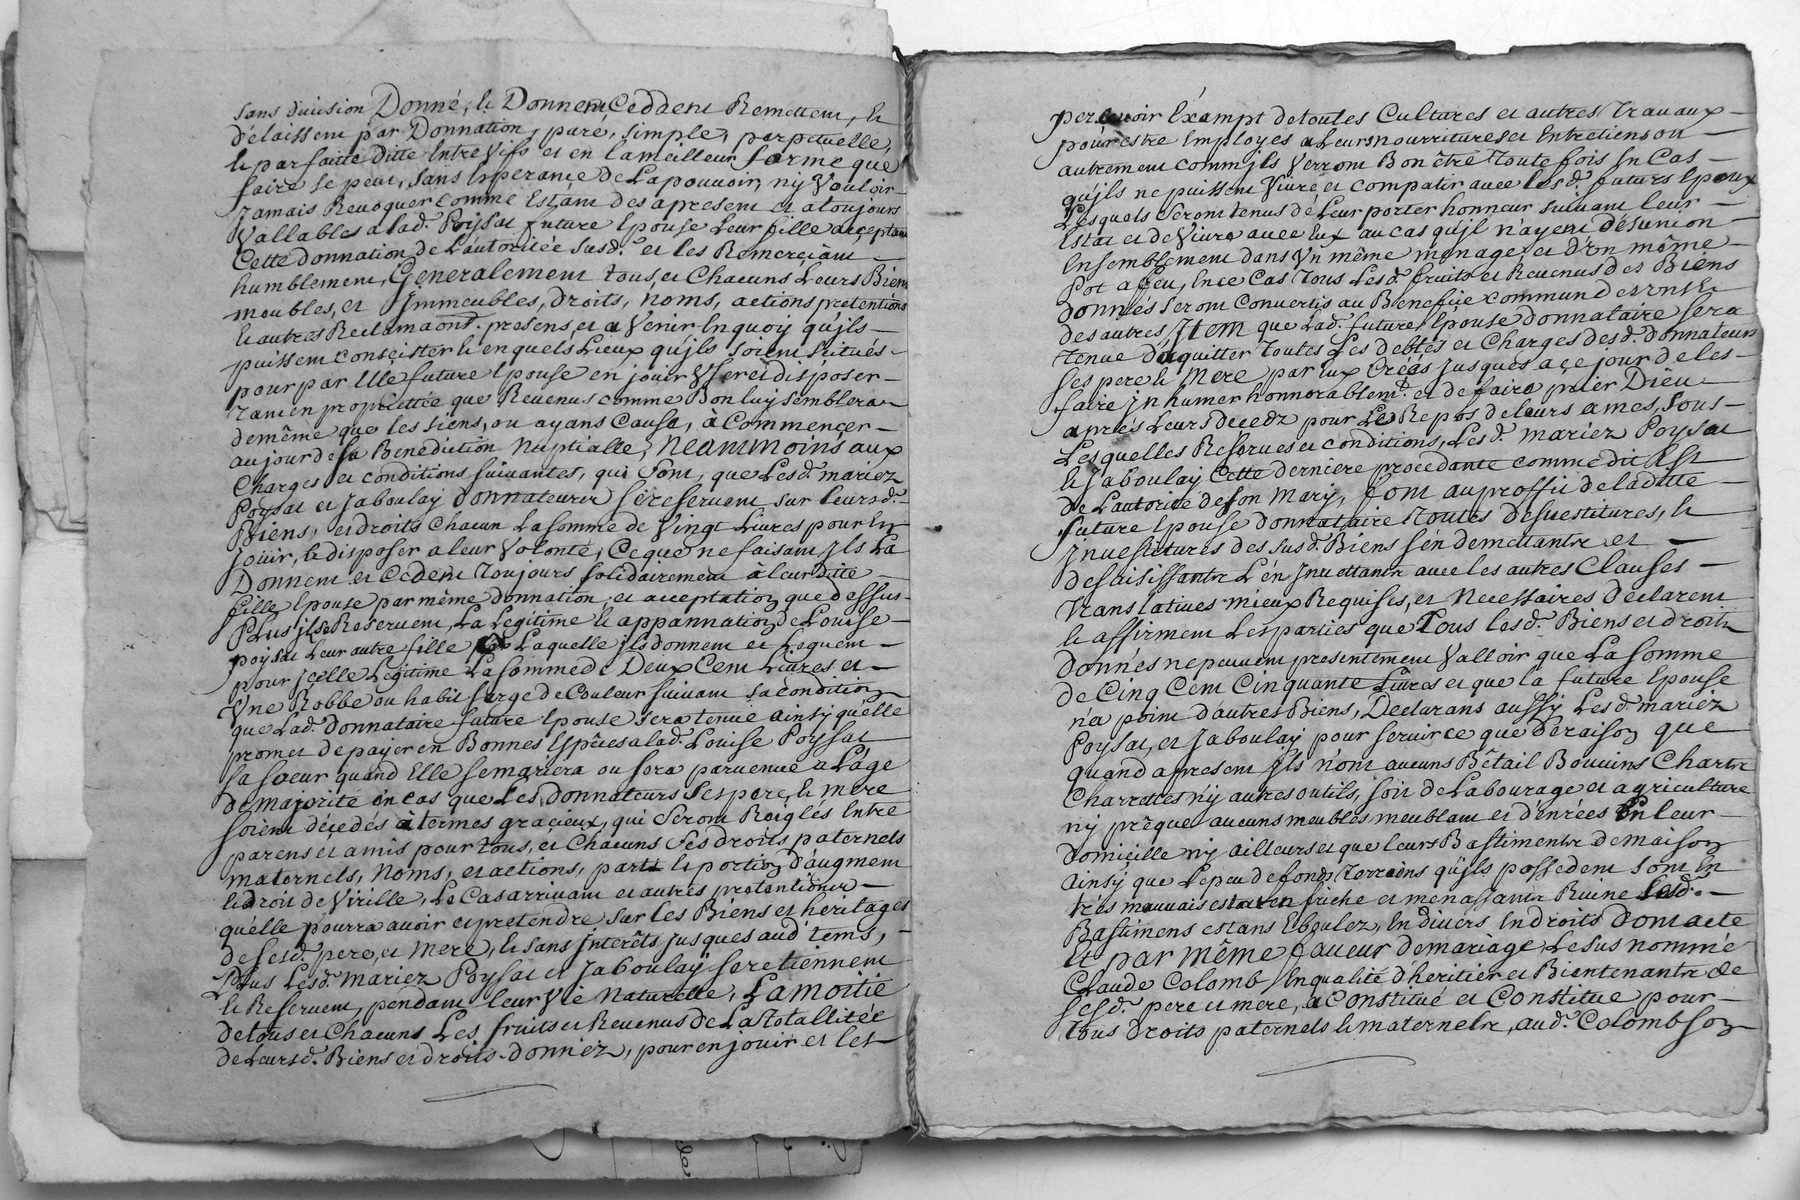 sans division Donné, & Donnent Ceddent Remettent, &
délaissent par Donnation, puré, simple, perpetuelle,
& parfaitte ditte Entre Vifs et en la meilleur forme que
faire se peut, sans Esperance de La pouvoir, ny Vouloir
Jamais Revoquer comme Estant des apresent et a toujours
Vallables a lad. Poysat future Epouse Leur fille acceptant
Cette donnation de L'autoritée susd. et les Remerciant
humblement, Generalement tous, et Chacuns Leurs Biens
meubles, et Immeubles, droits, noms, actions pretentions
& autres Reclamaons. presens, et a Venir En quoy qu'ils
puissent conscister & en quels Lieux qu'ils soient scitués
pour par Elle future Epouse en jouir Vser et disposer
Tant en propriettée que Revenus comme Bon luy semblera
de même que les siens, ou ayans Cause, à Commencer
au jour de sa Benediction Nuptialle, Neammoins aux
Charges et conditions suivantes, qui sont, que Lesd. mariez
Poysat et Jaboulay Donnateurs se reservent sur leursd.
Biens, et droits Chacun La somme de Vingt Livres pour En
jouir, & disposer a leur Volonté, Ce que ne faisant Ils La
Donnent et Cedent toujours solidairement à leur ditte
fille Epouse par même donnation et acceptation que dessus
Plus ils se Reservent, La Legitime & appannation de Louise
poysat Leur autre fille a Laquelle ils donnent et Leguent
pour jcelle Legitime La somme de Deux Cent Livres et
Vne Robbe ou habit serge de Couleur suivant sa condition
que Lad. Donnataire future Epouse sera tenue ainsy qu'elle
promet de payer en Bonnes Espêces a lad. Louise Poysat
sa soeur quand Elle se mariera ou sera parvenue a L'age
de majorité en cas que Les donnateurs ses pere, & mere
soient décedés à termes gracieux, qui seront Roiglés Entre
parens et amis pour tous, et Chacuns ses droits paternels
maternels, noms, et actions, part & portion d'augment
& droit de Virille, Le Cas arrivant et autres pretentions
qu'elle pourra avoir et pretendre sur les Biens et heritages
de sesd. pere, et mere, & sans Interêts jusques aud tems,
Plus Lesd. Mariez Poysat et Jaboulaÿ se retiennent
& Reservent, pendant leur Vie Naturelle, La moitié
de tous et Chacuns Les fruits et Revenus de La Totallitée
de Leursd. Biens et droits donnez, pour en jouir et les
percevoir Exámpt de toutes Cultures et autres Travaux
pour estre Employés a Leurs nourritures et Entretiens ou
autrement comm'ils Verront Bon être Toute fois En Cas
qu'ils ne puissent Vivre et compatir avec lesd. futurs Epoux
Lesquels seront tenus de Leur porter honneur suivant leur
Estat et de Vivre avec Eux au cas qu'il n'ayent désunion
Ensemblement dans Vn même ménage, et d'Vn même
Pot a feu, En ce Cas Tous Lesd. fruits et Revenus des Biens
donnés seront Convertis au Beneffice commun des Vns &
des autres, Item que Lad. future Epouse donnataire sera
tenue d'aquitter toutes Les debtes et Charges desd. donnateurs
ses pere & mere par eux Créés jusques a çe jour de les
faire Inhumer honnorablemt. et de faire prier Dieu
après Leurs decedz pour Le Repos de leurs ames, sous
Lesquelles Reserves et conditions, Lesd. mariez Poysat
& Jaboulay Cette derniere procedante comme dit Est
de L'autorité de son Mary, font au proffit de la ditte
future Epouse donnataire toutes Desvestitures, &
Jnvestitures des susd. Biens s'en demettants et
desaisissants L'én Jnvettants avec les autres Clauses
Translatives mieux Requises, et Necessaires Déclarent
& affirment Les parties que Tous lesd. Biens et droits
donnés ne peuvent presentement Valloir que La somme
de Cinq Cent Cinquante Livres et que la future Epouse
n'a point d'autres Biens, Declarans aussy Lesd. mariez
Poysat, et Jaboulaÿ pour servir ce que de raison que
quand apresent Ils n'ont aucuns Bêtail Bouvins Chartr
Charrettes ny autres outils, soit de Labourage et agriculture
ny prêque aucuns meubles meublant et dénrées En leur
domicille ny ailleurs et que leurs Bastiments de maison
ainsy que Le peu de fonds Terreins qu'ils possedent sont En
trés mauvais estat en friche et menassants Ruine Lesd.
Bastimens estans Eboulez, En divers Endroits Dont acte
Et par même faveur de mariage Le sus nommé
Claude Colomb En qualité d'heritier et Bientenants de
sesd. pere et mere, a Constitué et Constitue pour
tous Droits paternels & maternels, aud. Colomb son